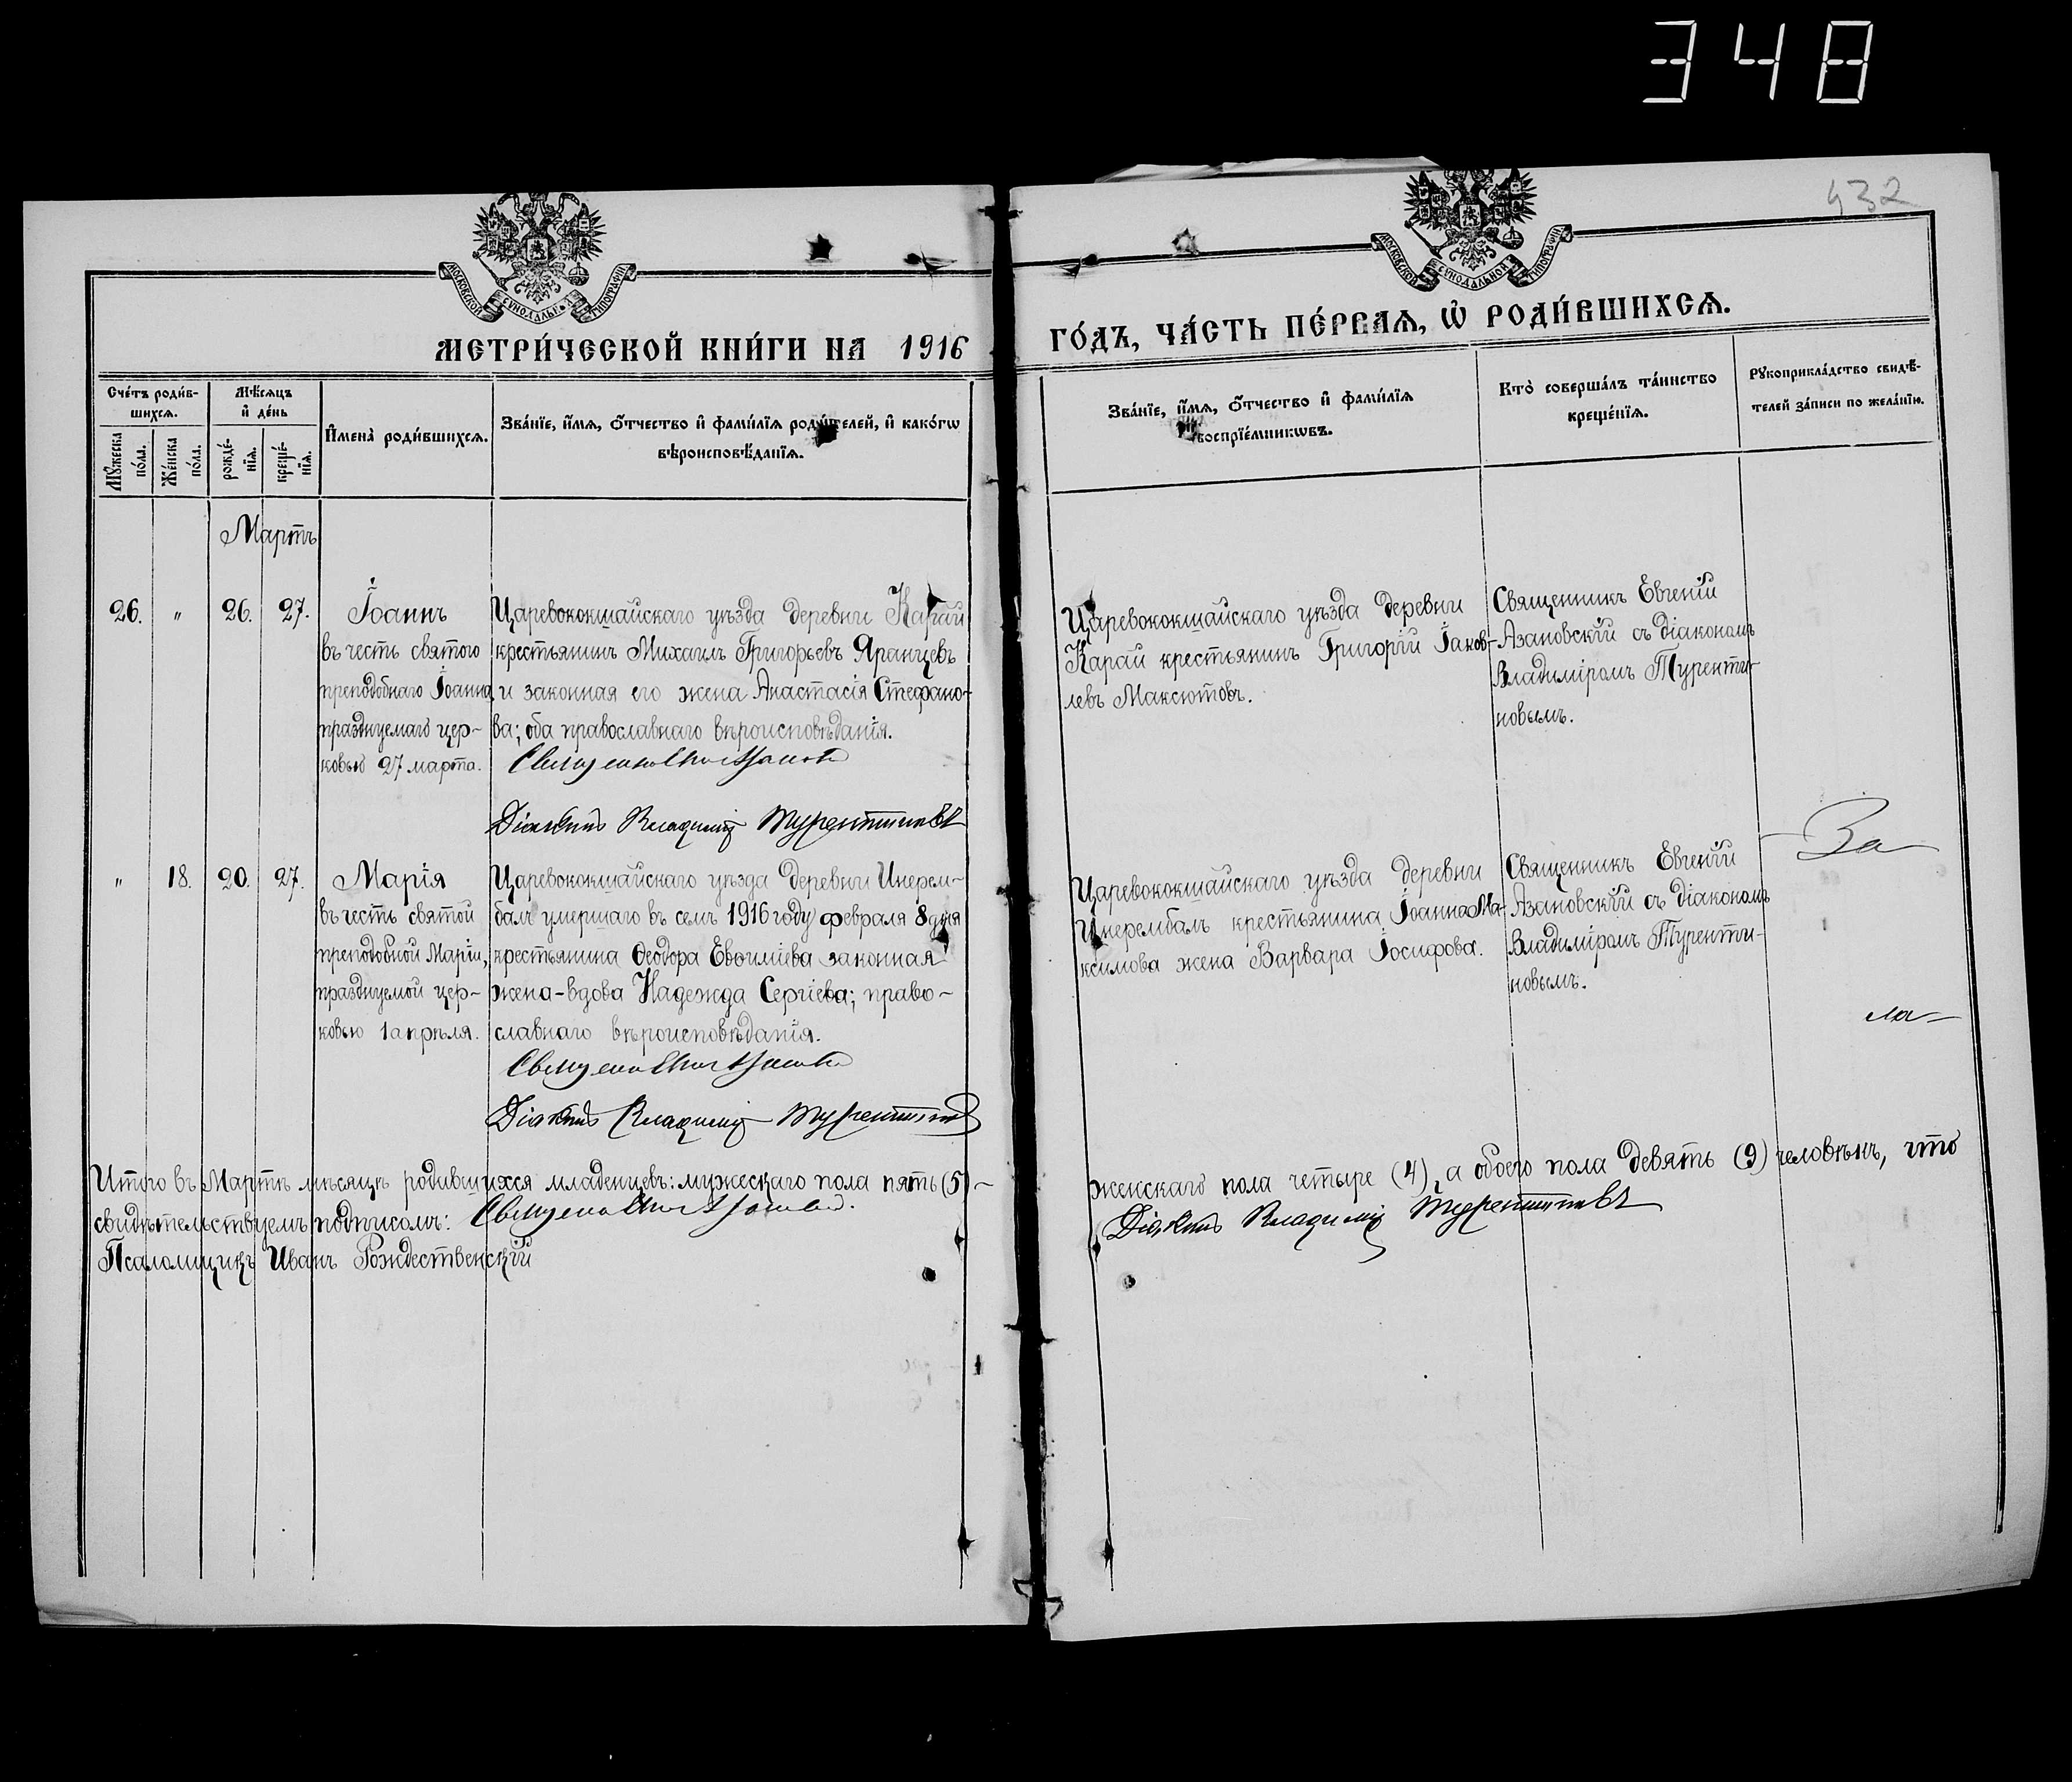 348
432
МОСКОВСКОЙ СУНОДАЛЬНОЙ ТИПОГРАФІИ
МОСКОВСКОЙ СУНОДАЛЬНОЙ ТИПОГРАФІИ
МЕТРИ́ЧЕСКОЙ КНИ́ГИ НА 1916
ГО́ДЪ, ЧА́СТЬ ПЕ́РВАѦ, Ѡ҆ РОДИ́ВШИХСѦ.
Сче́тъ роди́в-
шихсѧ.
Мꙋ́жеска
по́ла.
Же́нска
по́ла.
Мѣ́сѧцъ
и҆ де́нь
рожде́-
нїѧ.
креще́-
нїѧ.
И҆мена̀ роди́вшихсѧ.
Зва́нїе, и҆́мѧ, ѻ҆́тчество и҆ фами́лїѧ роди́телей, и҆ како́гѡ
вѣроисповѣ́данїѧ.
Зва́нїе, и҆́мѧ, ѻ҆́тчество и҆ фами́лїѧ
воспрїе́мникѡвъ.
Кто̀ соверша́лъ та́инство
креще́нїѧ.
Рꙋкоприкла́дство свидѣ́-
телей за́писи по жела́нїю.
Мартъ
26. " 26. 27.
Іоаннъ
въ честь святого
преподобнаго Іоанна,
празднуемаго цер-
ковью 27 марта.
Царевококшайскаго уѣзда деревни Карай
крестьянинъ Михаилъ Григорьевъ Яранцевъ
и законная его жена Анастасія Стефано-
ва; оба православнаго вѣроисповѣданія.
Діаконъ Владимір Турентиновъ
Царевококшайскаго уѣзда деревни
Карай крестьянинъ Григорій Іаков-
левъ Максютовъ.
Священникъ Евгеній
Азановскій съ діакономъ
Владиміромъ Туренти-
новымъ.
" 18. 20. 27.
Марія
въ честь святой
преподобной Маріи,
празднуемой цер-
ковью 1 апрѣля.
Царевококшайскаго уѣзда деревни Инерем-
балъ умершаго въ семъ 1916 году февраля 8 дня
крестьянина Ѳеодора Евѳиміева законная
жена-вдова Надежда Сергіева; право-
славнаго вѣроисповѣданія.
Діаконъ Владимір Турентиновъ
Царевококшайскаго уѣзда деревни
Инерембалъ крестьянина Іоанна Ма-
ксимова жена Варвара Іосифова.
Священникъ Евгеній
Азановскій съ діакономъ
Владиміромъ Туренти-
новымъ.
За
ла-
Итого въ Мартѣ мѣсяцѣ родившихся младенцевъ: мужескаго пола пять (5) -
женскаго пола четыре (4), а обоего пола девять (9) человѣкъ, что
свидѣтельствуемъ подписомъ:
Діаконъ Владимір Турентиновъ
Псаломщикъ Иванъ Рождественскій